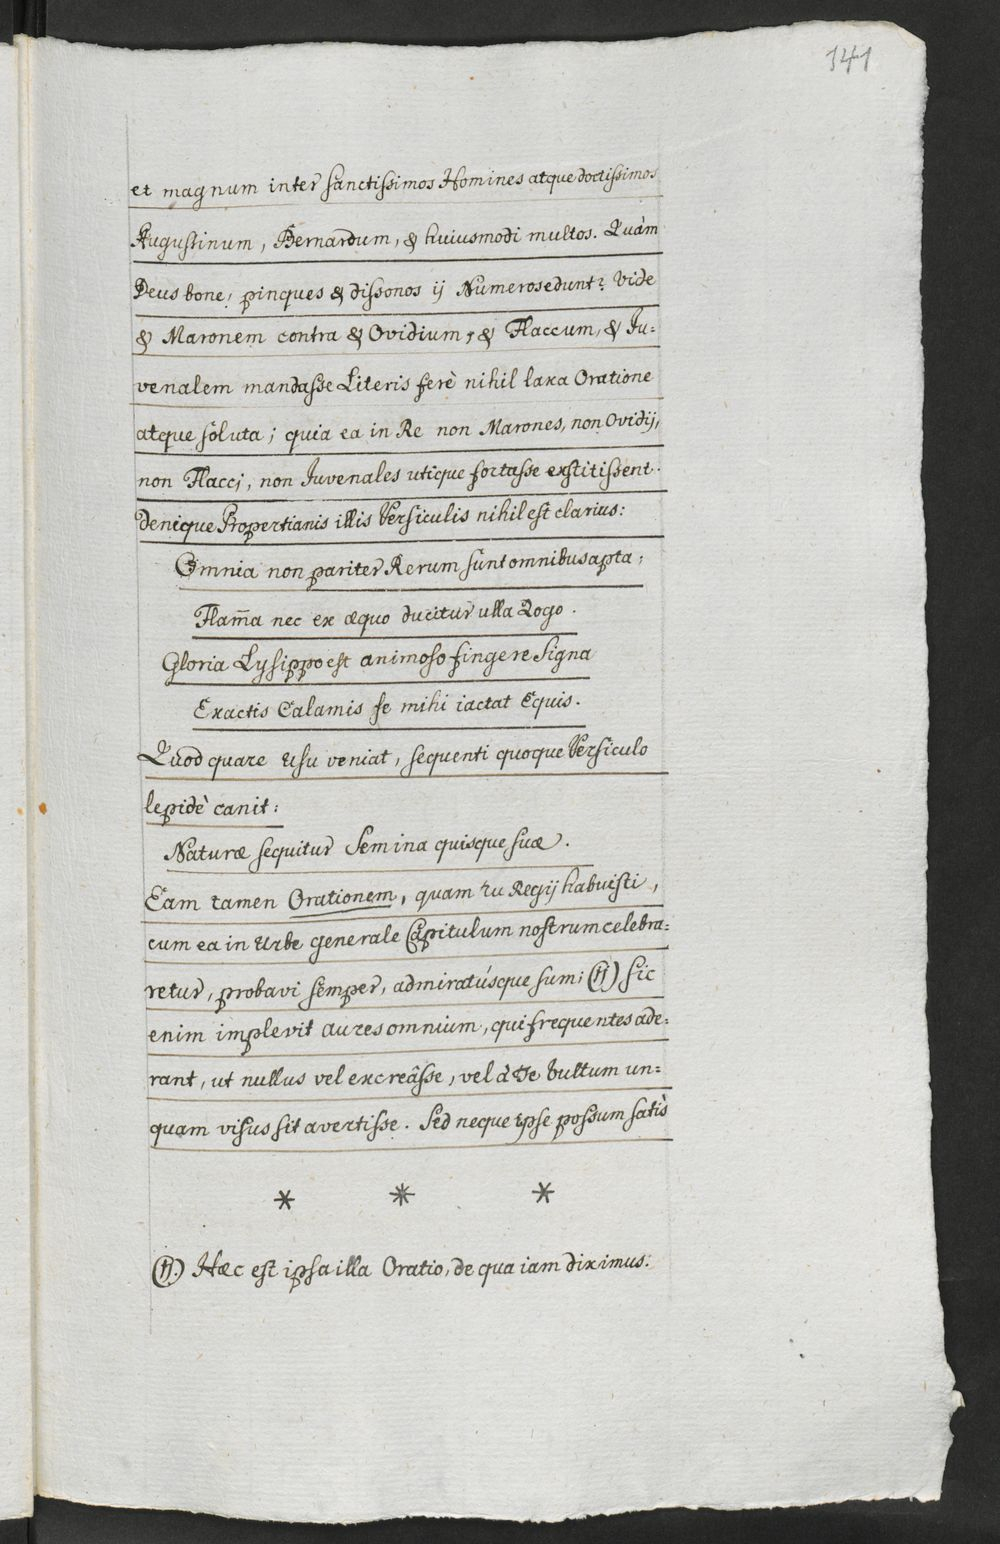 141
et magnum inter sanctissimos Homines atque doctissimos
Augustinum, Bernardum, & huiusmodi multos. Quàm
Deus bone, pinques & dissonos ij Numeros edunt? Vide
& Maronem contra & Ovidium, & Flaccum, & Ju=
venalem mandasse Literis ferè nihil laxa Oratione
atque soluta; quia ea in Re non Marones, non Ovidij,
non Flacci, non Juvenales utique fortasse exstitissent.
denique Propertianis illis Versiculis nihil est clarius:
Omnia non pariter Rerum sunt omnibus apta;
Flam̄a nec ex æquo ducitur ulla Rogo.
Gloria Lysippo est animoso fingere Signa
Exactis Calamis se mihi iactat Equis.
Quod quare usu veniat, sequenti quoque Versiculo
lepidè canit:
Naturæ sequitur Semina quisque suæ.
Eam tamen Orationem, quam tu Regij habuisti,
cum ea in Urbe generale Capitulum nostrum celebra=
retur, probavi semper, admiratúsque sum; (H) sic
enim implevit aures omnium, qui frequentes ade=
rant, ut nullus vel excreâsse, vel à Te Vultum un=
quam visus sit avertisse. Sed neque ipse possum satis
* * *
(H.) Hæc est ipsa illa Oratio, de qua iam diximus.